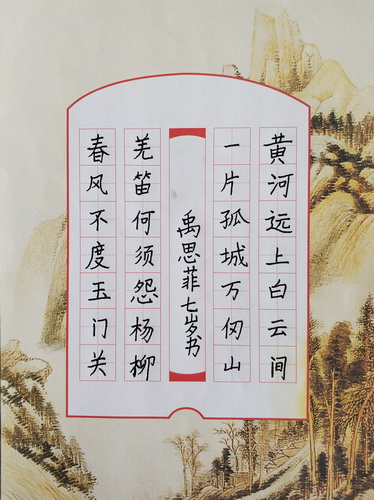 黄河远上白云间
一片孤城万仞山
禹思菲七岁书
羌笛何须怨杨柳
春风不度玉门关